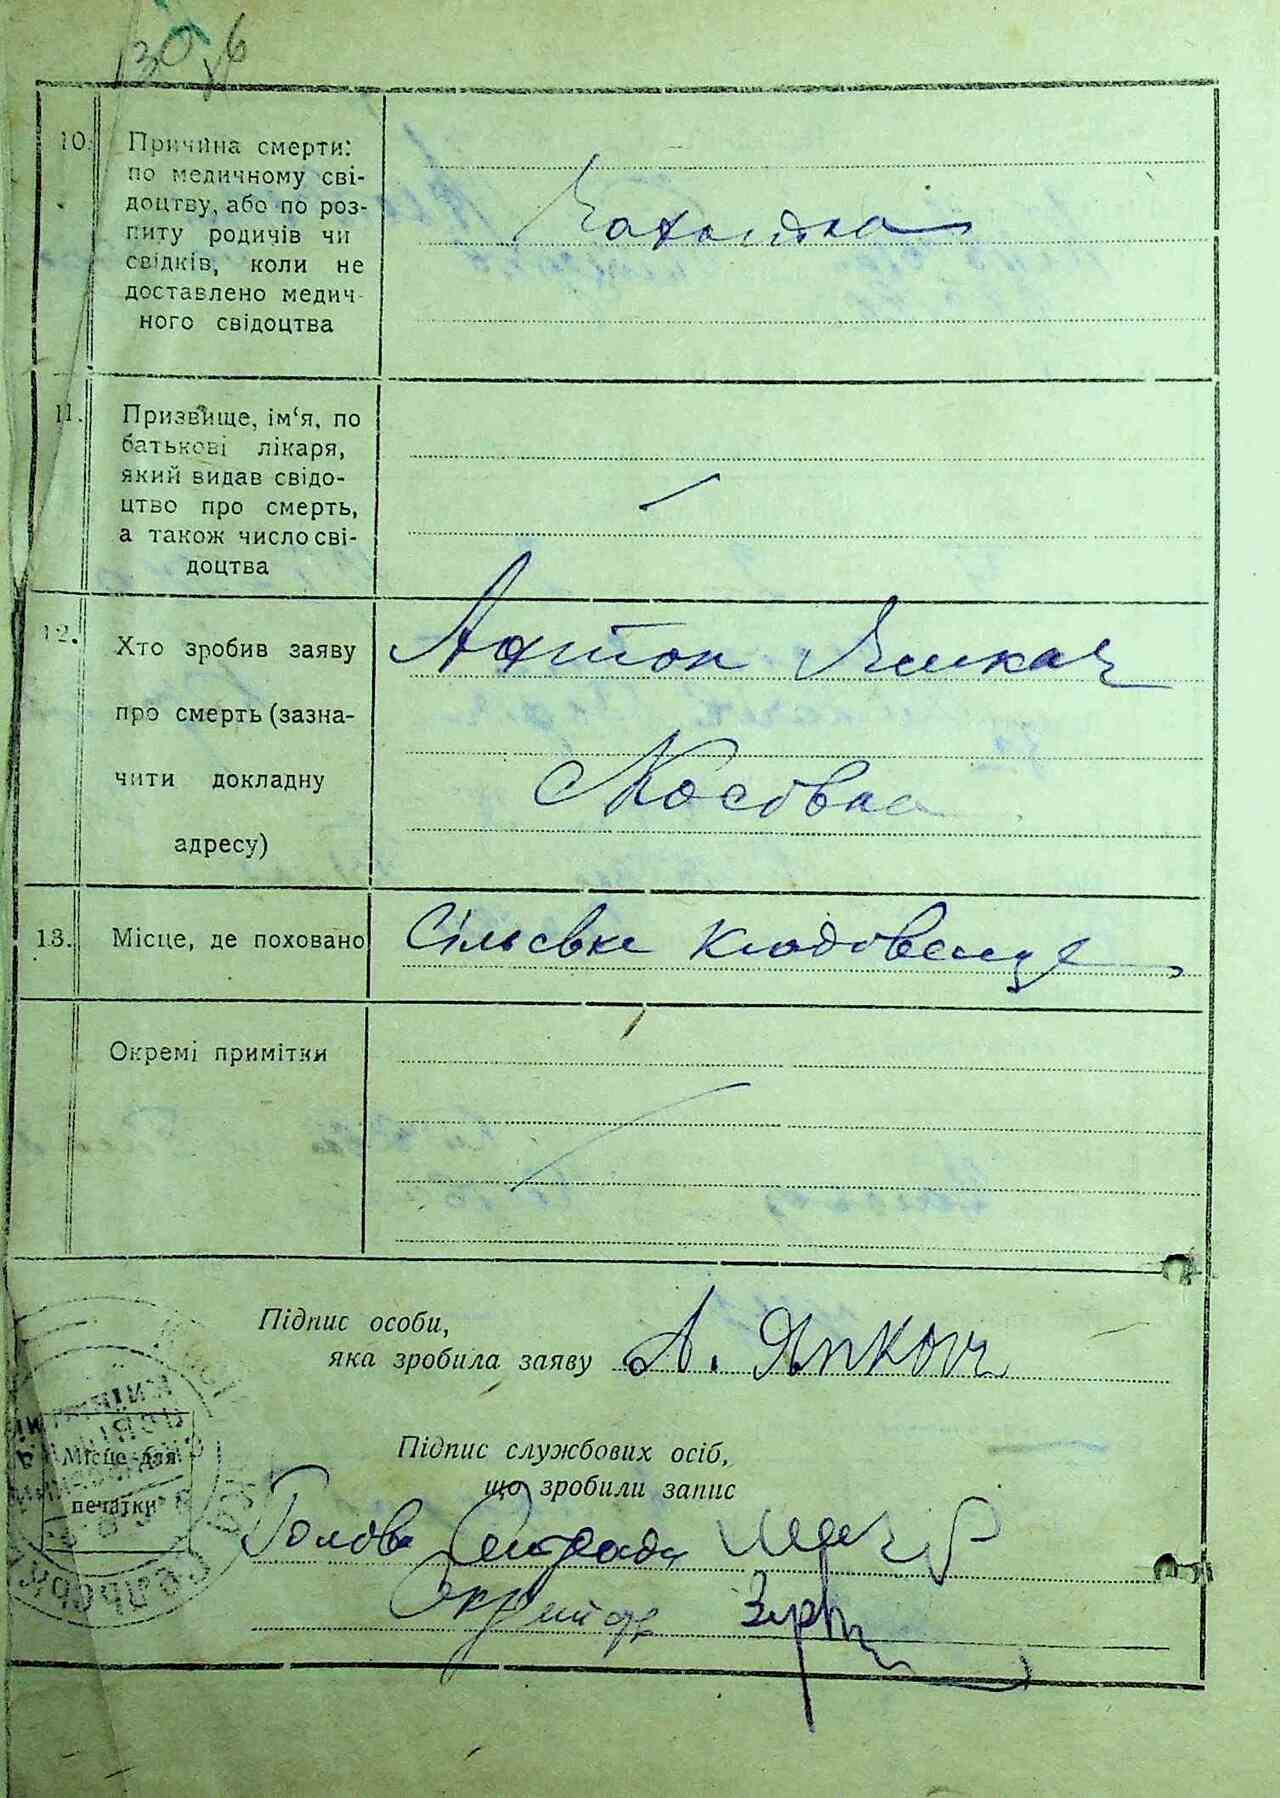 130
6
10.
Причина смерти:
по медичному сві-
доцтву, або по роз-
питу родичів чи
свідків, коли не
доставлено медич-
ного свідоцтва
11.
Призвище, ім‘я, по
батькові лікаря,
який видав свідо-
цтво про смерть,
а також число сві-
доцтва
12.
Хто зробив заяву
про смерть (зазна-
чити докладну
адресу)
Антон
Мосівка
13.
Місце, де поховано
Сільське кладовище
Окремі примітки
Підпис особи,
яка зробила заяву А.
Підпис службових осіб,
що зробили запис
Місце для
печатки
Голова Сільради